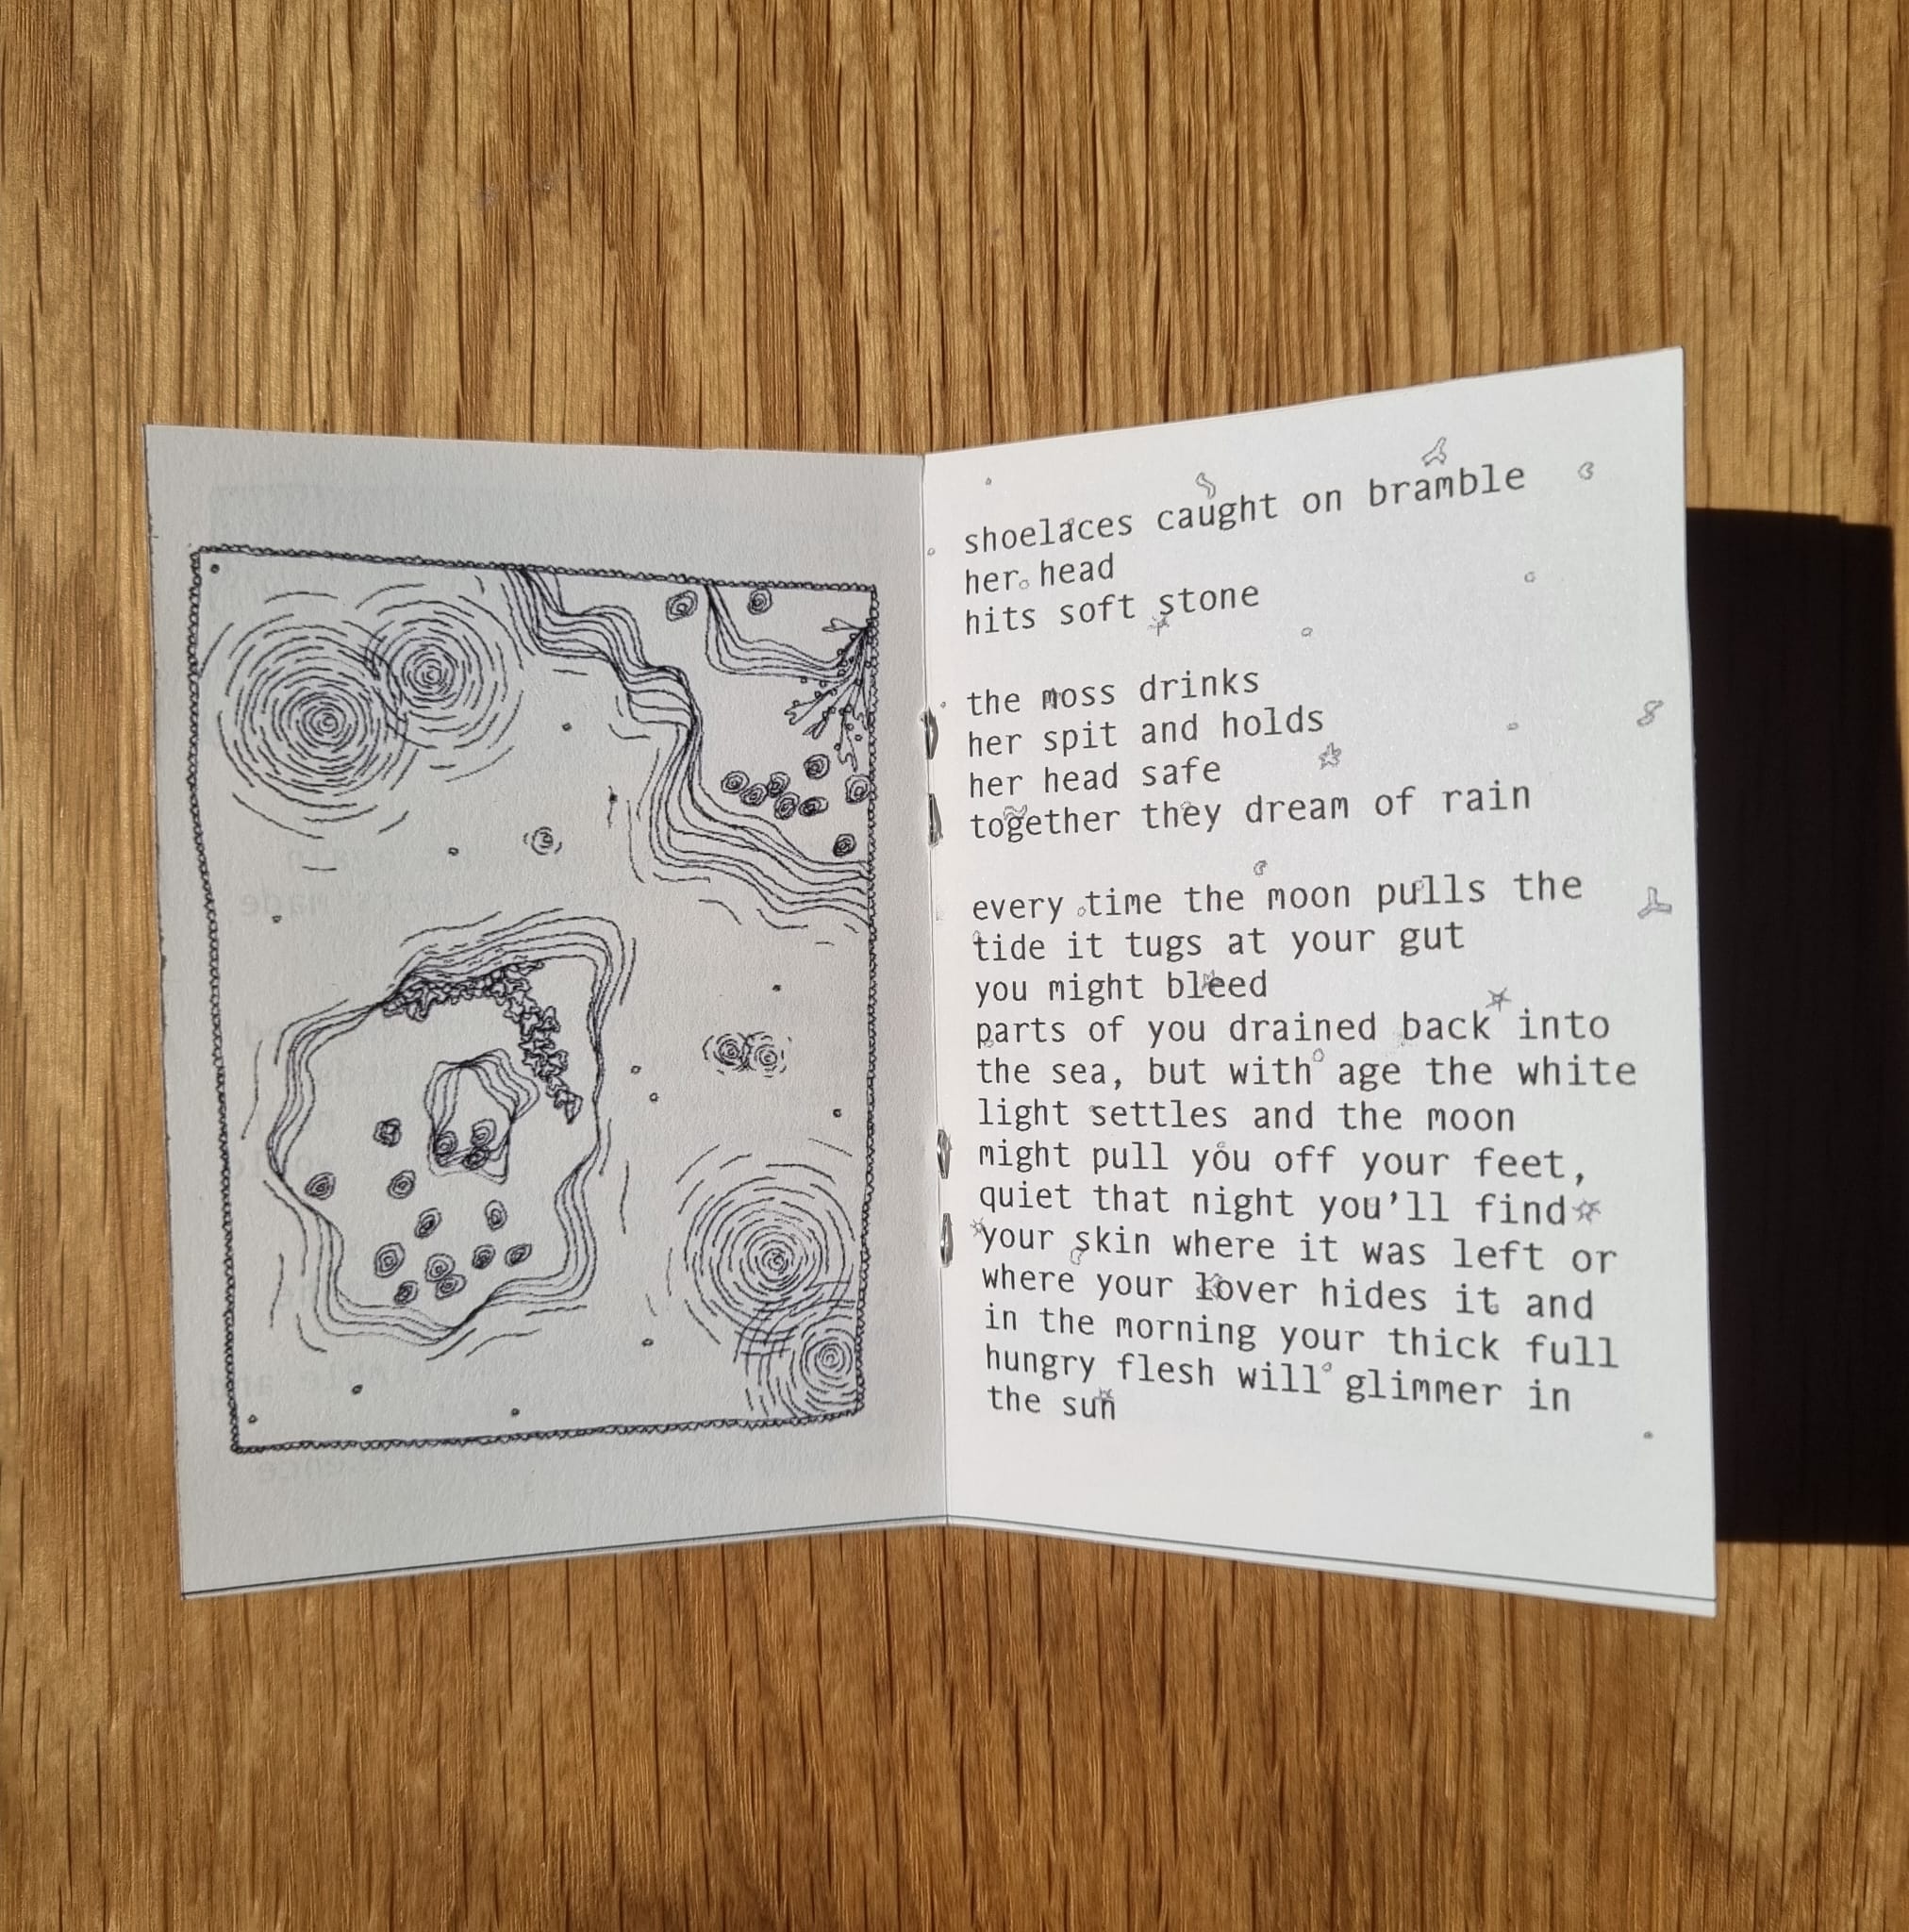 shoelaces caught on bramble
her head
hits soft stone
the moss drinks
her spit and holds
her head safe
together they dream of rain
every time the moon pulls the
tide it tugs at your gut
you might bleed
parts of you drained back into
the sea, but with age the white
light settles and the moon
might pull you off your feet,
quiet that night you'll find
your skin where it was left or
where your lover hides it and
in the morning your thick full
hungry flesh will glimmer in
the sun